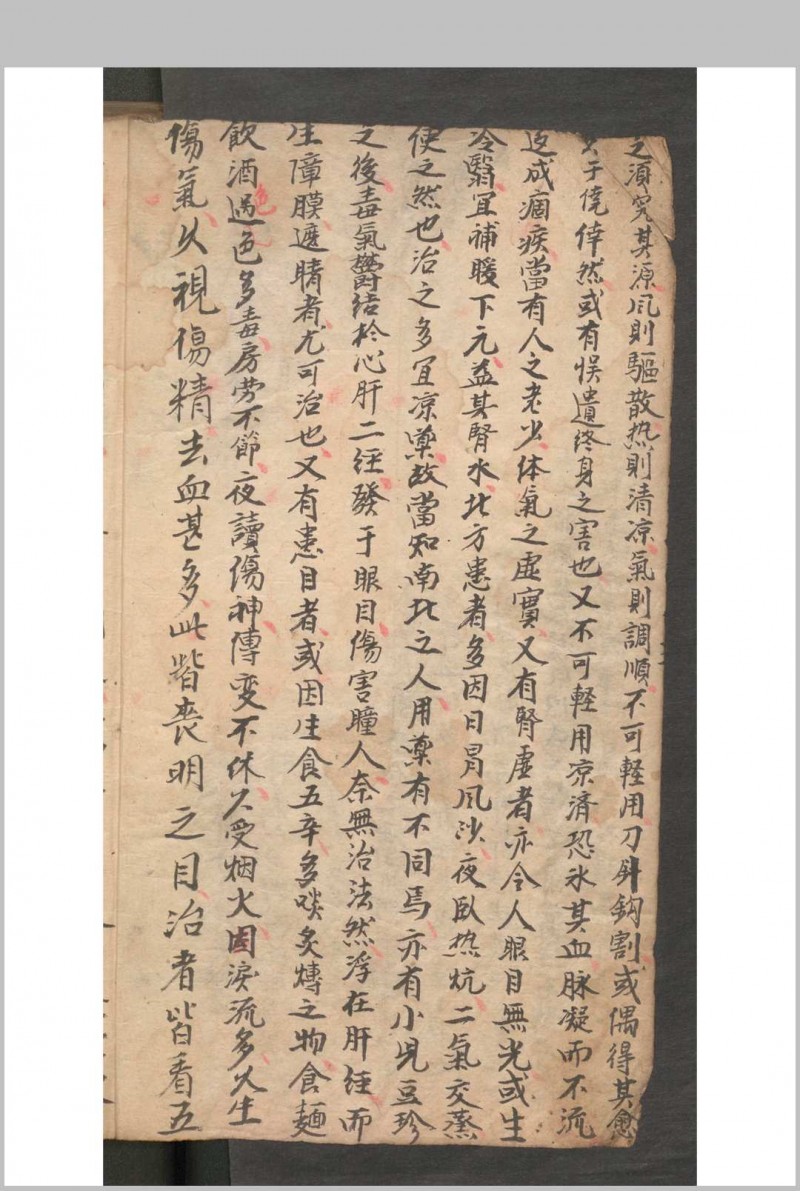 之須究其源风則驅散热則清凉氣則調順不可軽用刀針鈎割或偶得其愈
于僥倖然或有悞遺终身之害也又不可軽用凉済恐氷其血脉凝而不流
返成痼疾當有人之老少体氣之虚實又有腎虚者亦令人眼目無光或生
冷翳宜補暖下元益其腎水北方患者多因日冒风沙夜臥热炕二氣交蒸
使之然也治之多宜凉藥故當知南北之人用藥有不同焉亦有小児豆珍
之後毒氣欝结於心肝二经發于眼目傷害瞳人奈無治法然浮在肝经而
生障膜遮睛者尤可治也又有患目者或因生食五辛多啖炙煿之物食麺
飲酒過色多毒房劳不節夜讀傷神傳变不休久受烟火因淚流多久生
傷氣久視傷精去血甚多此皆喪明之目治者皆看五